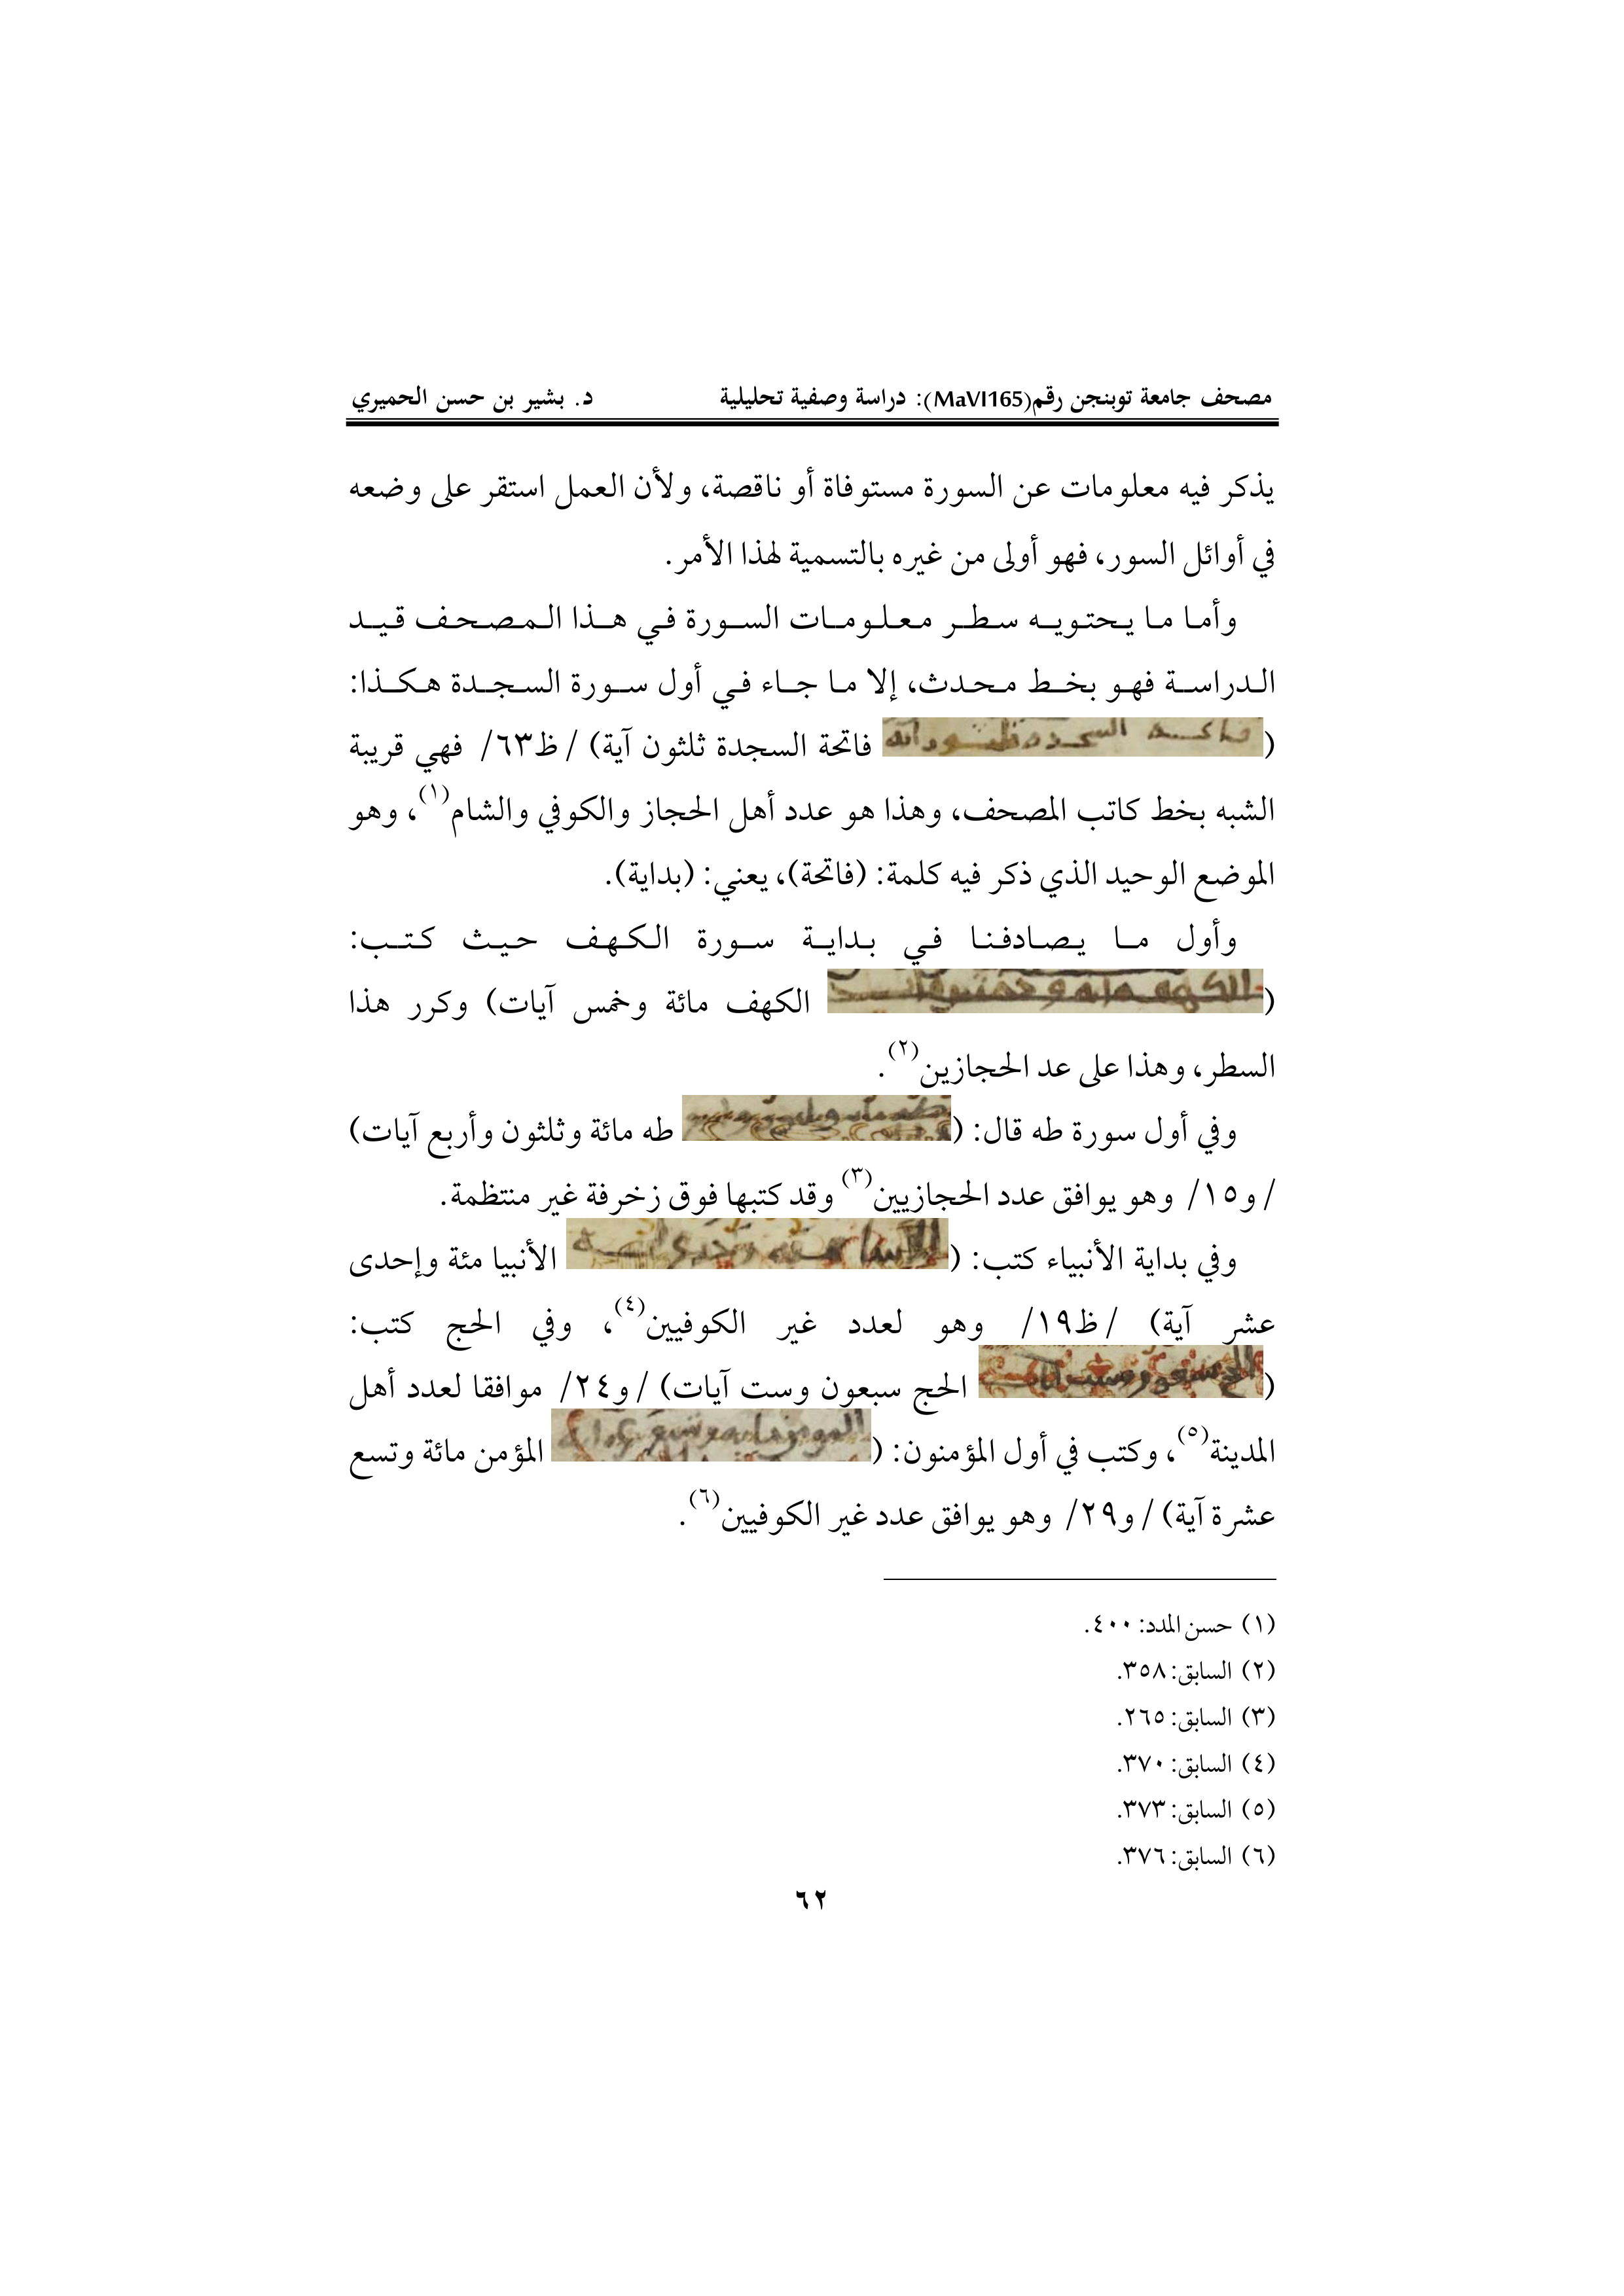 مصحف جامعة توبنجن رقم(MaVI165): دراسة وصفية تحليلية د. بشير بن حسن الحميري
يذكر فيه معلومات عن السورة مستوفاة أو ناقصة، ولأن العمل استقر على وضعه
في أوائل السور، فهو أولى من غيره بالتسمية لهذا الأمر.
وأما ما يحتويه سطر معلومات السورة في هذا المصحف قيد
الدراسة فهو بخط محدث، إلا ما جاء في أول سورة السجدة هكذا:
( فاتحة السجدة ثلثون آية) /ظ٦٣/ فهي قريبة
الشبه بخط كاتب المصحف، وهذا هو عدد أهل الحجاز والكوفي والشام(١)، وهو
الموضع الوحيد الذي ذكر فيه كلمة: (فاتحة)، يعني: (بداية).
وأول ما يصادفنا في بداية سورة الكهف حيث كتب:
( الكهف مائة وخمس آيات) وكرر هذا
السطر، وهذا على عد الحجازين(٢).
وفي أول سورة طه قال: ( طه مائة وثلثون وأربع آيات)
/و١٥/ وهو يوافق عدد الحجازيين(٣) وقد كتبها فوق زخرفة غير منتظمة.
وفي بداية الأنبياء كتب: ( الأنبيا مئة وإحدى
عشر آية) /ظ١٩/ وهو لعدد غير الكوفيين(٤)، وفي الحج كتب:
( الحج سبعون وست آيات) /و٢٤/ موافقا لعدد أهل
المدينة(٥)، وكتب في أول المؤمنون: ( المؤمن مائة وتسع
عشرة آية) /و٢٩/ وهو يوافق عدد غير الكوفيين(٦).
(١) حسن المدد: ٤٠٠.
(٢) السابق: ٣٥٨.
(٣) السابق: ٢٦٥.
(٤) السابق: ٣٧٠.
(٥) السابق: ٣٧٣.
(٦) السابق: ٣٧٦.
٦٢